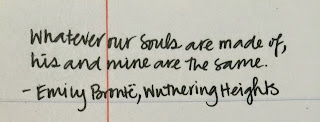 Whatever our souls are made of,
his and mine are the same.
- Emily Brontë, Wuthering Heights